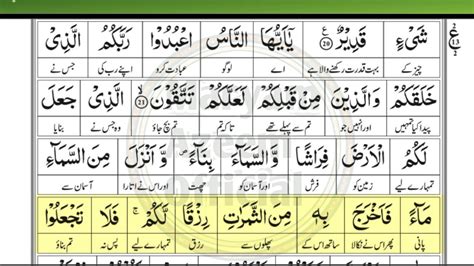 شَیْءٍ قَدِیْرٌ ﴿20﴾ یٰۤاَیُّهَا النَّاسُ اعْبُدُوْا رَبَّكُمُ الَّذِیْ
چیز کے بہت قدرت رکھنے والا ہے اے لوگو عبادت کرو اپنے رب کی جس نے
خَلَقَكُمْ وَالَّذِیْنَ مِنْ قَبْلِكُمْ لَعَلَّكُمْ تَتَّقُوْنَ ﴿21﴾ الَّذِیْ جَعَلَ
پیدا کیا تمہیں اور انہیں جو تم سے پہلے تھے تاکہ تم بچ جاؤ وہ جس نے بنایا
لَكُمُ الْاَرْضَ فِرَاشًا وَّالسَّمَآءَ بِنَآءً وَّاَنْزَلَ مِنَ السَّمَآءِ
تمہارے لیے زمین کو فرش اور آسمان کو چھت اور اس نے اتارا آسمان سے
مَآءً فَاَخْرَجَ بِهٖ مِنَ الثَّمَرٰتِ رِزْقًا لَّكُمْ فَلَا تَجْعَلُوْا
پانی پھر اس نے نکالا ساتھ اس کے پھلوں سے رزق تمہارے لیے پس نہ تم بناؤ